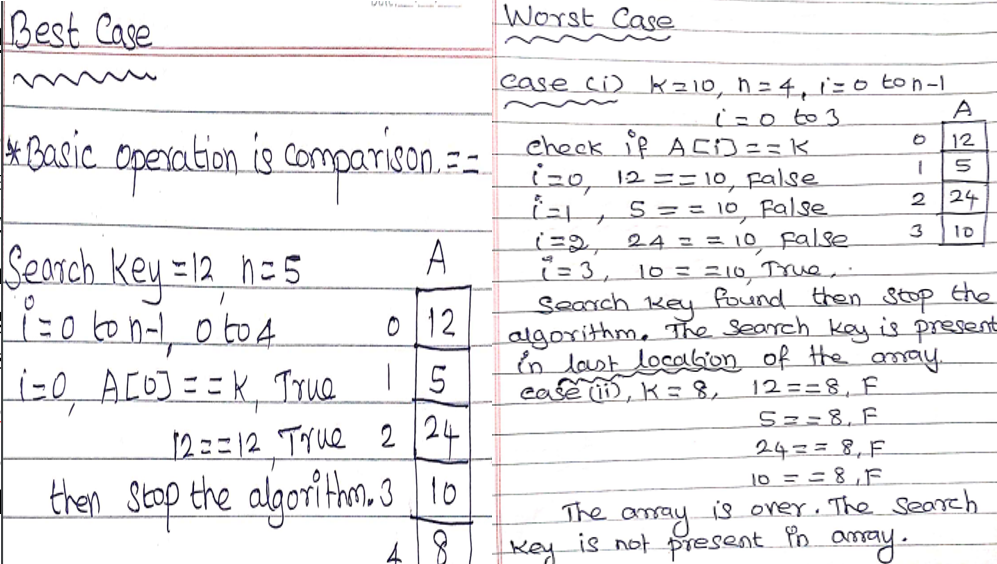 Best Case
*Basic operation is comparison. ==
Search key =12, n=5
A
i=0 to n-1, 0 to 4
0 12
i=0, A[0]==K, True
1 5
12==12, True
2 24
then stop the algorithm.
3 10
4 8
Worst Case
case (i) K=10, n=4, i=0 to n-1
i=0 to 3
A
check if A[i]==K
0 12
i=0, 12==10, False
1 5
i=1, 5==10, False
2 24
i=2, 24==10, False
3 10
i=3, 10==10, True.
Search key found then stop the
algorithm. The search key is present
in last location of the array.
case (ii), K=8, 12==8, F
5==8, F
24==8, F
10==8, F
The array is over. The search
key is not present in array.